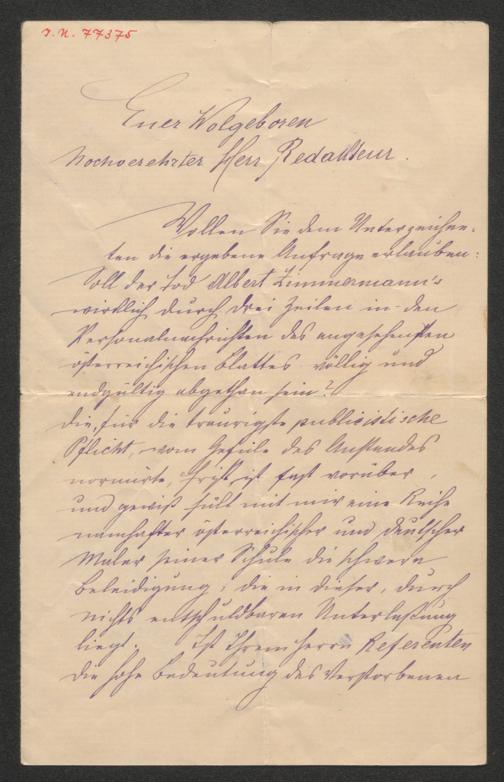 I.N. 77375
Euer Wolgeboren
Hochverehrter Herr Redakteur.
Wollen Sie dem Unterzeichne-
ten die ergebene Anfrage erlauben:
Soll der Tod Albert Zimmermann's
wirklich durch drei Zeilen in den
Personalnachrichten des angesehensten
österreichischen Blattes völlig und
endgültig abgethan sein?
Die, für die traurigste publicistische
Pflicht, vom Gefüle des Anstandes
normirte, Frist ist fast vorüber,
und gewiß fült mit mir eine Reihe
namhafter österreichischer und deutscher
Maler seiner Schule die schwere
Beleidigung, die in dieser, durch
nichts entschuldbaren Unterlaßung
liegt. Ist Ihrem Herrn Referenten
die hohe Bedeutung des Verstorbenen